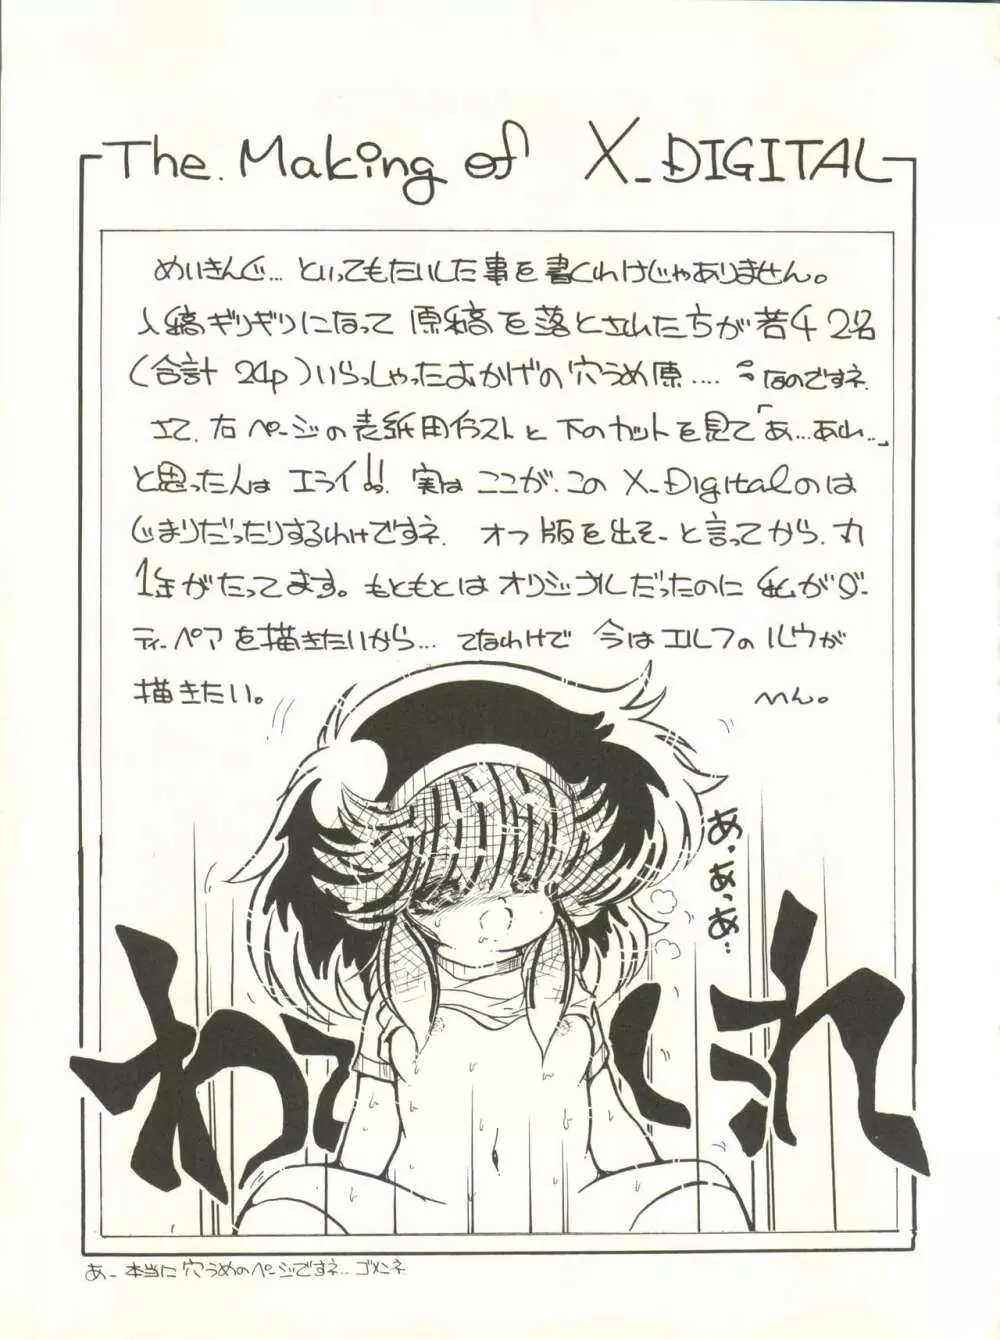 The. Making of X_DIGITAL
めいきんぐ… といってもたいした事を書くわけじゃありません。
入稿ギリギリになって 原稿を落とされたたちが若干2名
(合計 24p)いらっしゃったおかげの穴うめ原…. なのですネ.
さて、右ページの表紙用イラストと下のカットを見て「あ…あれ…」
と思った人は エライ!! 実は ここが、この X_Digitalのは
じまりだったりするわけですネ. オフ版を出そーと言ってから、丸
1年がたってます。もともとは オリジナルだったのに 私がダー
ティーペアを描きたいから… てなわけで 今はエルフのルウが
描きたい。 へん。
あ、あっあ…
わ れ
あー 本当に穴うめのページですネ… ゴメンネ